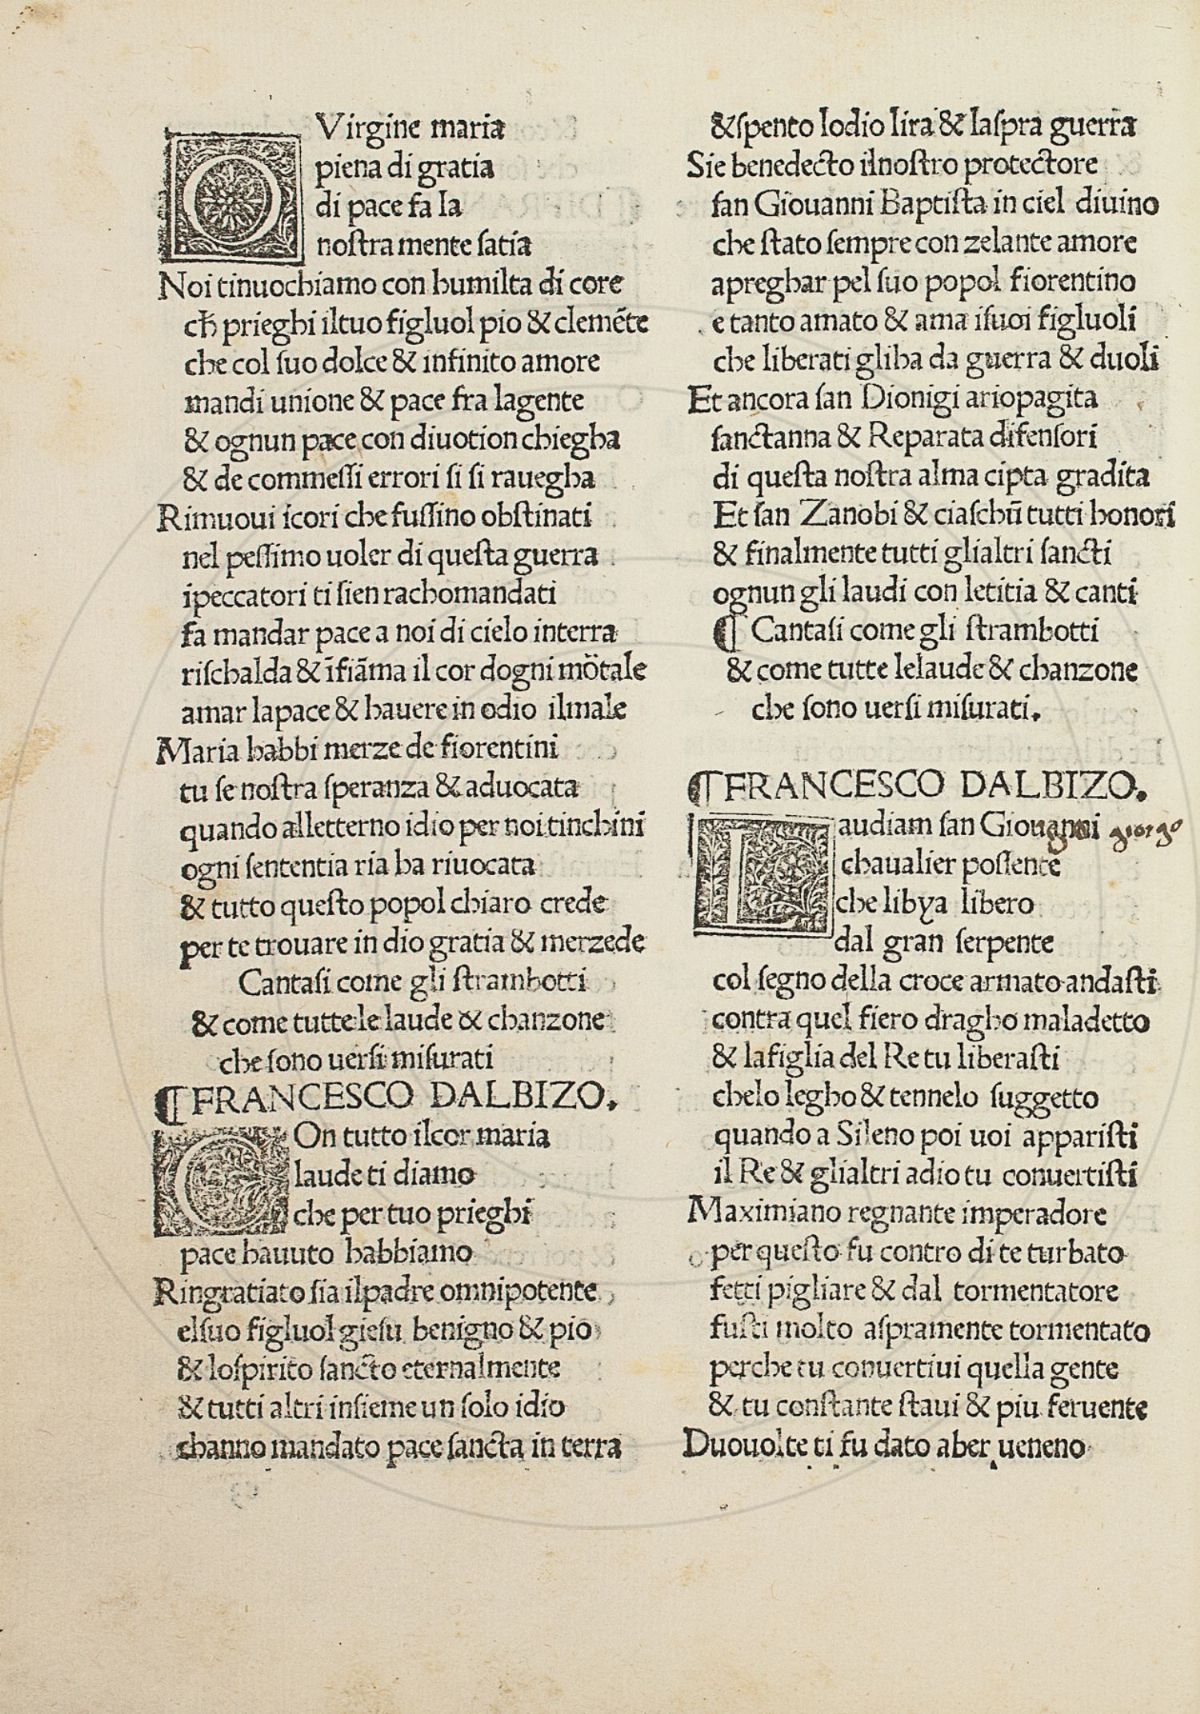 O Virgine maria
piena di gratia
di pace fa la
nostra mente satia
Noi tinuochiamo con humilta di core
cħ prieghi iltuo figluol pio & clemēte
che col suo dolce & infinito amore
mandi unione & pace fra lagente
& ognun pace con diuotion chiegha
& de commessi errori si si rauegha
Rimuoui icori che fussino obstinati
nel pessimo uoler di questa guerra
ipeccatori ti sien rachomandati
fa mandar pace a noi di cielo interra
rischalda & īfiāma il cor dogni mortale
amar lapace & hauere in odio ilmale
Maria habbi merze de fiorentini
tu se nostra speranza & aduocata
quando alletterno idio per noi tinchini
ogni sententia ria ha riuocata
& tutto questo popol chiaro crede
per te trouare in dio gratia & merzede
Cantasi come gli strambotti
& come tutte le laude & chanzone
che sono uersi misurati
¶FRANCESCO DALBIZO.
COn tutto ilcor maria
laude ti diamo
che per tuo prieghi
pace hauuto habbiamo
Ringratiato sia ilpadre omnipotente
elsuo figluol giesu benigno & pio
& lospirito sancto eternalmente
& tutti altri insieme un solo idio
channo mandato pace sancta in terra
&spento lodio lira & laspra guerra
Sie benedecto ilnostro protectore
san Giouanni Baptista in ciel diuino
che stato sempre con zelante amore
apreghar pel suo popol fiorentino
e tanto amato & ama isuoi figluoli
che liberati gliha da guerra & duoli
Et ancora san Dionigi ariopagita
sanctanna & Reparata difensori
di questa nostra alma cipta gradita
Et san Zanobi & ciaschū tutti honori
& finalmente tutti glialtri sancti
ognun gli laudi con letitia & canti
¶ Cantasi come gli strambotti
& come tutte lelaude & chanzone
che sono uersi misurati.
¶FRANCESCO DALBIZO.
Laudiam san Giouanni giorgo
chaualier possente
che libya libero
dal gran serpente
col segno della croce armato andasti
contra quel fiero dragho maladetto
& lafiglia del Re tu liberasti
chelo legho & tennelo suggetto
quando a Sileno poi uoi apparisti
il Re & glialtri adio tu conuertisti
Maximiano regnante imperadore
per questo fu contro di te turbato
fetti pigliare & dal tormentatore
fusti molto aspramente tormentato
perche tu conuertiui quella gente
& tu constante staui & piu feruente
Duouolte ti fu dato aber ueneno